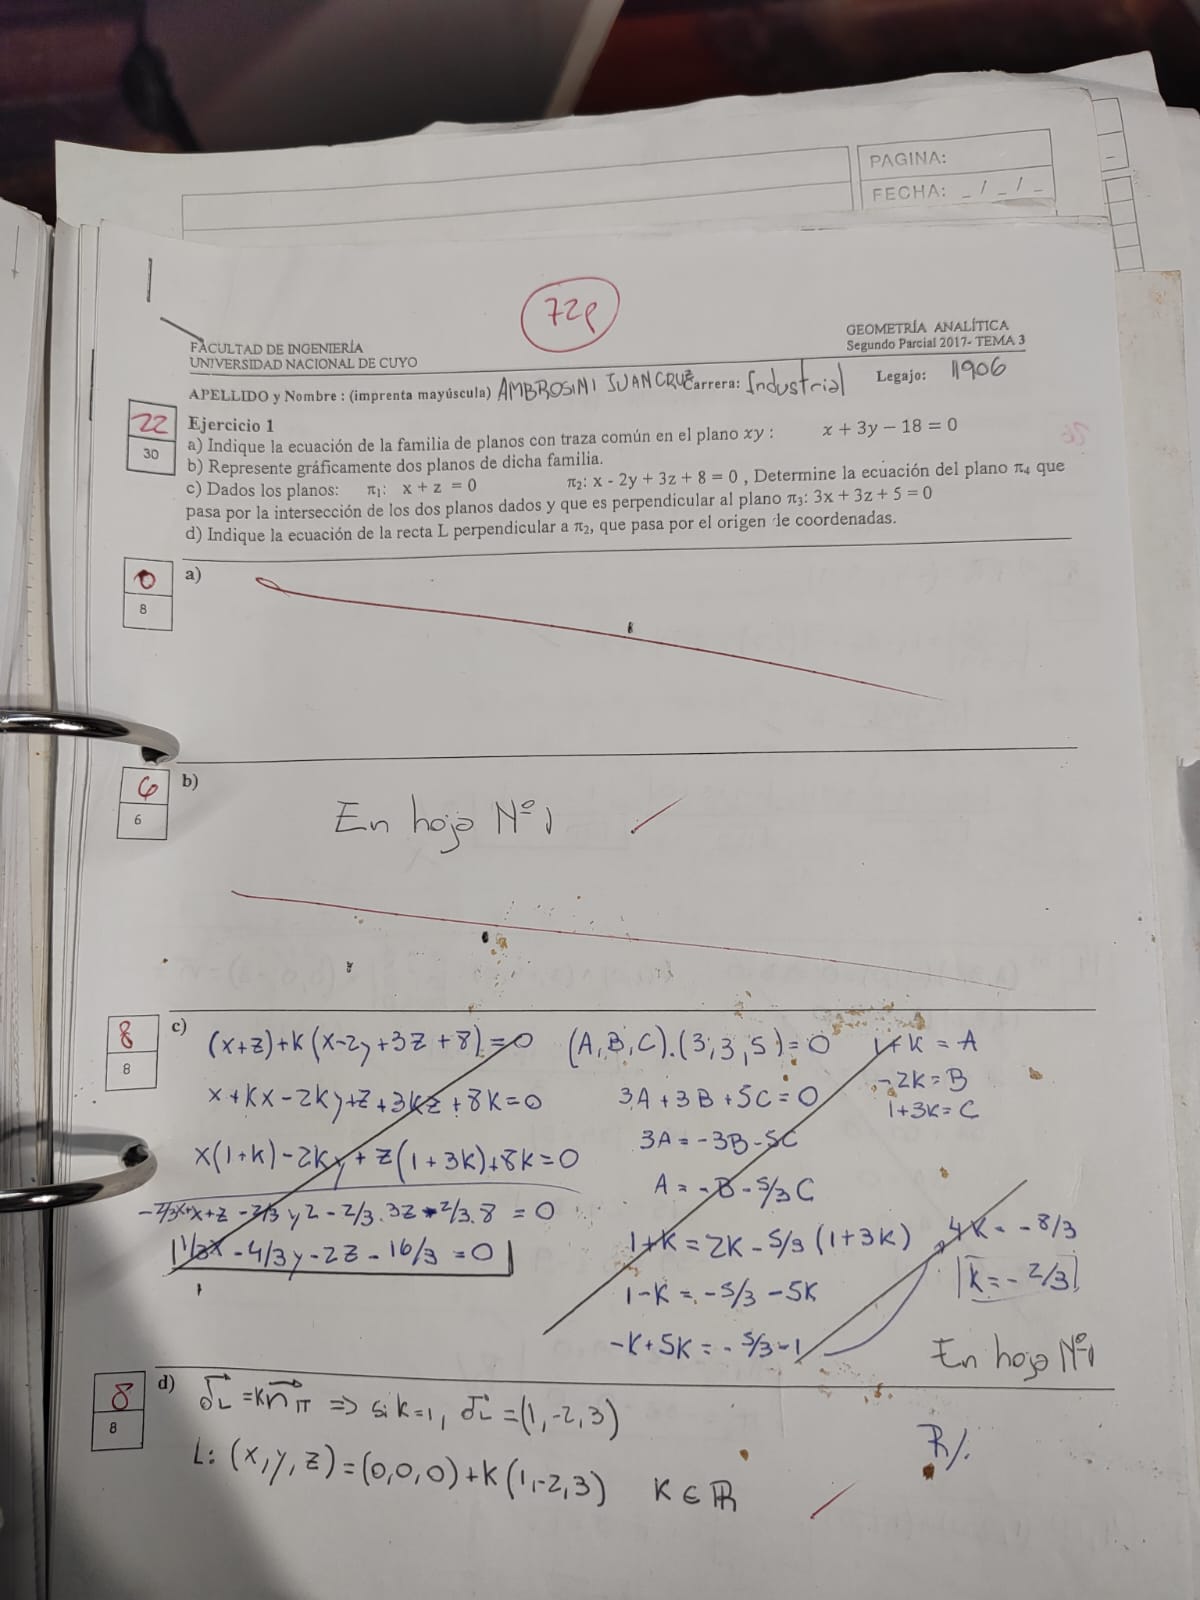 PAGINA:
FECHA: _ / _ / _
72p
FACULTAD DE INGENIERÍA
UNIVERSIDAD NACIONAL DE CUYO
GEOMETRÍA ANALÍTICA
Segundo Parcial 2017- TEMA 3
APELLIDO y Nombre : (imprenta mayúscula) AMBROSINI JUAN CRUZ Carrera: Industrial Legajo: 11906
22
30
Ejercicio 1
a) Indique la ecuación de la familia de planos con traza común en el plano xy : x + 3y − 18 = 0
b) Represente gráficamente dos planos de dicha familia.
c) Dados los planos: π₁: x + z = 0 π₂: x - 2y + 3z + 8 = 0 , Determine la ecuación del plano π₄ que
pasa por la intersección de los dos planos dados y que es perpendicular al plano π₃: 3x + 3z + 5 = 0
d) Indique la ecuación de la recta L perpendicular a π₂, que pasa por el origen de coordenadas.
0
8
a)
6
6
b)
En hoja Nº1
8
8
c)
(x+z)+k(x-2y+3z+8)=0 (A,B,C).(3,3,5)=0 1+k = A
x+kx-2ky+z+3kz+8k=0 3A+3B+5C=0 -2k=B
1+3k=C
x(1+k)-2ky+z(1+3k)+8k=0 3A=-3B-5C
A=-B-5/3C
-2/3x+x+z-2/3y2-2/3.3z-2/3.8=0
1/3x-4/3y-2z-16/3=0 1+k=2k-5/3(1+3k) 4k=-8/3
1-k=-5/3-5k k=-2/3
-k+5k=-5/3-1
En hoja Nº1
8
8
d) δL=k nπ ⇒ si k=1, δL=(1,-2,3)
L: (x,y,z)=(0,0,0)+k(1,-2,3) k∈ℝ
R/.